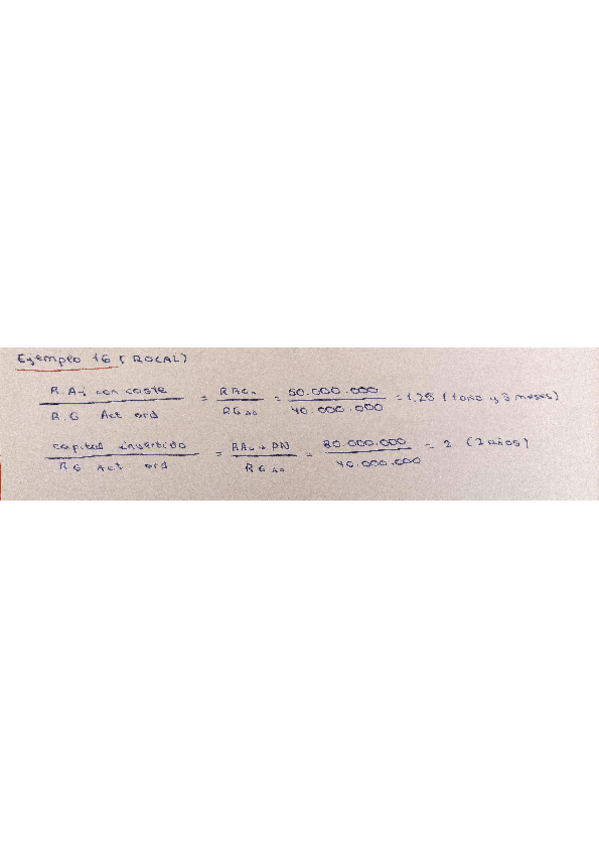 Ejemplo 16 (ROCAL)
R.Aj con coste / R.G Act ord = RAC / RG AO = 50.000.000 / 40.000.000 = 1,25 (1 año y 3 meses)
capital invertido / RG Act ord = + PN / RG AO = 80.000.000 / 40.000.000 = 2 (2 años)